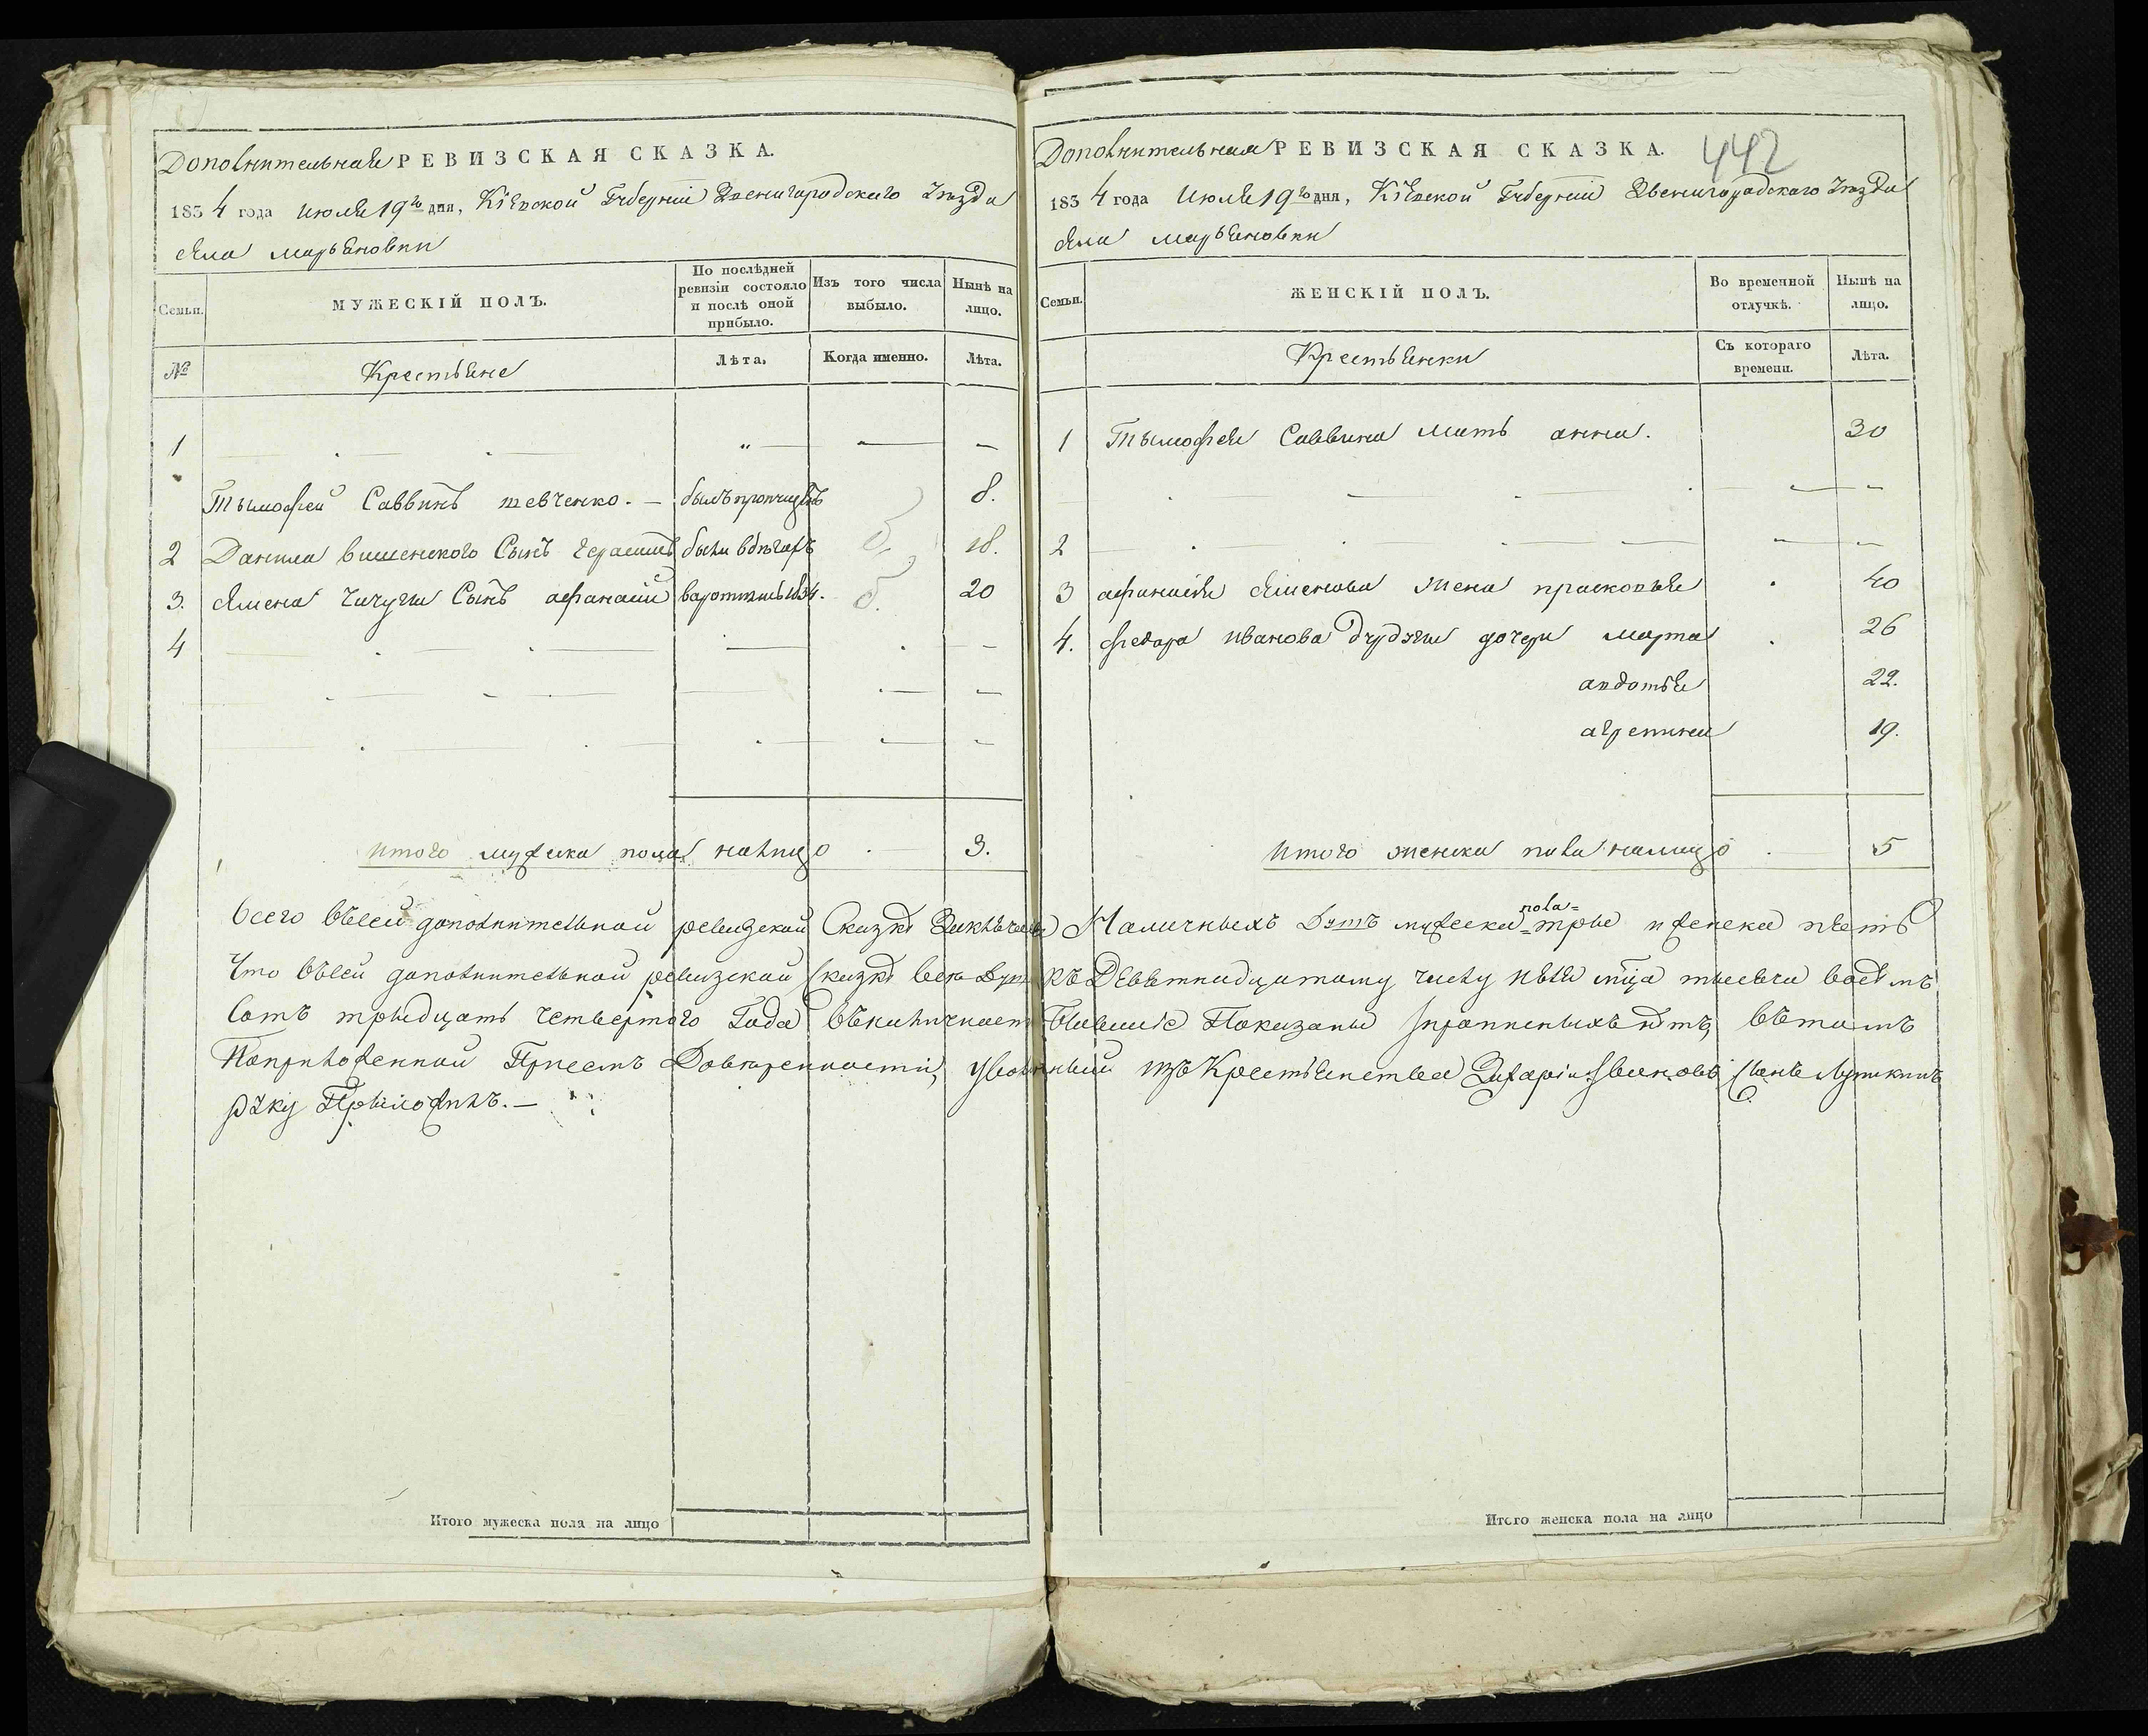 Дополнительная РЕВИЗСКАЯ СКАЗКА.
1834 года июля 19го дня, Кіевской Губерніи Звенигородского уезда
села марьяновки
Семьи.
МУЖЕСКІЙ ПОЛЪ.
По послѣдней ревизіи состояло и послѣ оной прибыло.
Изъ того числа выбыло.
Нынѣ на лицо.
№
Крестьяне
Лѣта.
Когда именно.
Лѣта.
1
Тымофей Саввинъ шевченко. — былъ пропущенъ 8.
2 Данила вишенского Сынъ герасимъ были вбѣгахъ 18.
3. Семена чичуги Сынъ афанасий 1834. 20
4
итого мужска пола налицо 3.
Дополнительная РЕВИЗСКАЯ СКАЗКА. 442
1834 года июля 19го дня, Кіевской Губерніи Звенигородского уезда
села марьяновки
Семьи.
ЖЕНСКІЙ ПОЛЪ.
Во временной отлучкѣ.
Нынѣ на лицо.
Крестьянки
Съ котораго времени.
Лѣта.
1 Тымофея Саввина мать анна. 30
2
3 афанасия Семенова жена прасковья 40
4. федора иванова дочери марта 26
авдотья 22.
агрепина 19.
итого женска пола налицо 5
всего въсей дополнительной ревизской Сказке Наличныхъ Душъ мужеска пола трые и женска пять
Что въсей дополнительной ревизской Сказке все Душ къ Девятнадцатому числу июля мца тысяча восемъ
Сотъ тридцать четвертого Года Показаны и пропис­ныхъ нѣтъ, вътомъ
из Крестьянства Захарій Ивановъ Сынъ
руку Приложилъ. —
Итого мужеска пола на лицо
Итого женска пола на лицо